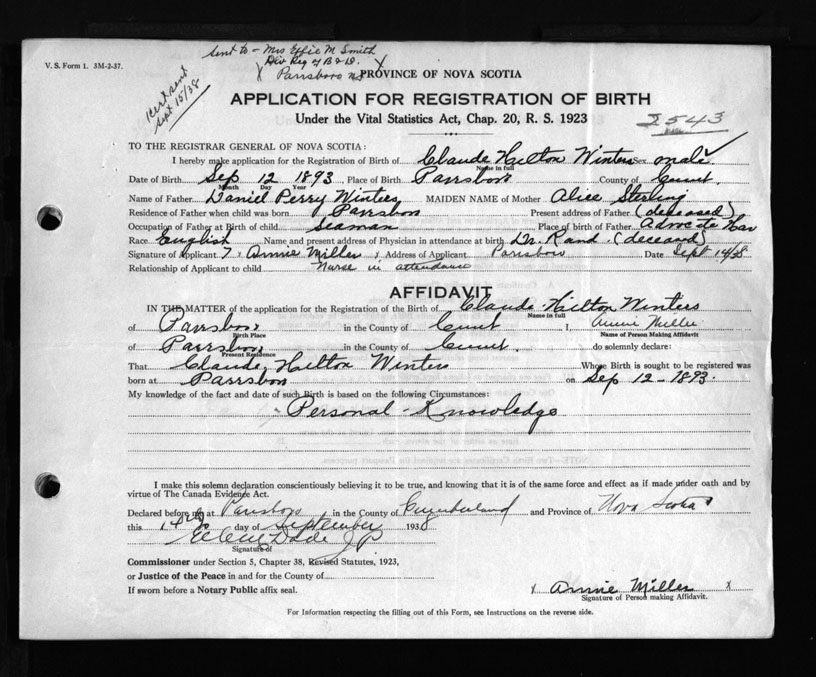 V. S. Form 1. 3M-2-37.
sent to - Mrs Effie M Smith
Div Reg of B & D.
X Parrsboro N.S X
Cert sent
Sept 15/38
PROVINCE OF NOVA SCOTIA
APPLICATION FOR REGISTRATION OF BIRTH
Under the Vital Statistics Act, Chap. 20, R. S. 1923
2543
TO THE REGISTRAR GENERAL OF NOVA SCOTIA:
I hereby make application for the Registration of Birth of Claude Hilton Winters Sex male
Name in full
Date of Birth Sep 12 1893 Place of Birth Parrsboro County of Cumt.
Month Day Year
Name of Father Daniel Perry Winters MAIDEN NAME of Mother Alice Sterling
Residence of Father when child was born Parrsboro Present address of Father (deceased)
Occupation of Father at Birth of child seaman Place of birth of Father Advocate Har
Race English Name and present address of Physician in attendance at birth Dr. Rand. (deceased)
Signature of Applicant Annie Miller x Address of Applicant Parrsboro Date Sept 14/38
Relationship of Applicant to child Nurse in attendance
AFFIDAVIT
IN THE MATTER of the application for the Registration of the Birth of Claude Hilton Winters
Name in full
of Parrsboro in the County of Cumt I, Annie Miller
Birth Place Name of Person Making Affidavit
of Parrsboro in the County of Cumt. do solemnly declare:
Present Residence
That Claude Hilton Winters Whose Birth is sought to be registered was
born at Parrsboro on Sep 12 - 1893.
My knowledge of the fact and date of such Birth is based on the following Circumstances:
Personal Knowledge
I make this solemn declaration conscientiously believing it to be true, and knowing that it is of the same force and effect as if made under oath and by
virtue of The Canada Evidence Act.
Declared before me at Parrsboro in the County of Cumberland and Province of Nova Scotia
this 14th day of September 1938
J P
Signature of
Commissioner under Section 5, Chapter 38, Revised Statutes, 1923,
or Justice of the Peace in and for the County of
If sworn before a Notary Public affix seal.
x Annie Miller x
Signature of Person making Affidavit.
For Information respecting the filling out of this Form, see Instructions on the reverse side.